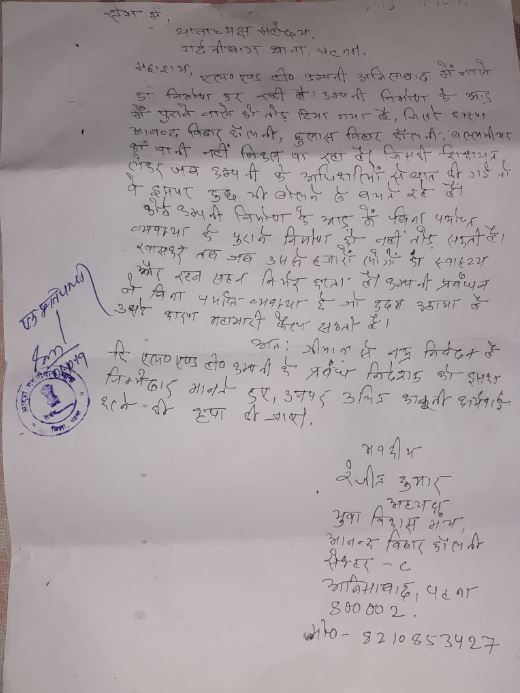 सेवा में,
थानाध्यक्ष महोदय,
गर्दनीबाग थाना, पटना.
महाशय, एल० एण्ड टी० कम्पनी अनिसाबाद में नाले
का निर्माण कर रही है। कम्पनी निर्माण के आड़
में पुराने नाले को तोड़ दिया गया है, जिसके कारण
आनन्द विहार कॉलनी, हुलास विहार कॉलनी,
का पानी नहीं निकल पा रहा है। जिसकी शिकायत
लेकर जब कम्पनी के अधिकारियों से बात की गई तो
वे इसपर कुछ भी बोलने से बचते रहे हैं।
कोई कम्पनी निर्माण के आड़ में बिना पर्याप्त
व्यवस्था के पुराने निर्माण को नहीं तोड़ सकती है।
खासकर तब जब उससे हजारों लोगों का स्वास्थ्य
और रहन सहन निर्भर करता हो। कम्पनी प्रबंधन
ने बिना पर्याप्त व्यवस्था के जो कदम उठाया है
उसके कारण महामारी फैल सकती है।
अतः श्रीमान से नम्र निवेदन है
कि एल० एण्ड टी० कम्पनी के प्रबंध निदेशक को इसका
जिम्मेदार मानते हुए, उनपर उचित कानूनी कार्रवाई
करने की कृपा की जाए।
भवदीय
रंजीत कुमार
अध्यक्ष
युवा विकास मंच,
आनन्द विहार कॉलनी
सेक्टर - C
अनिसाबाद, पटना
800002.
मो०- 8210853427